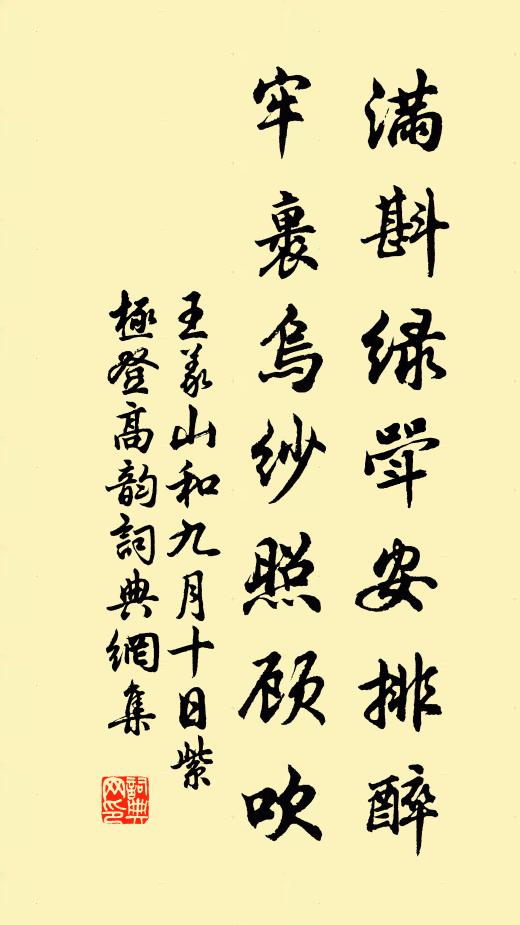 满斟绿斝安排醉
牢裹乌纱照顾吹
王义山和九月十日紫
极登高韵词典网集
词典网印